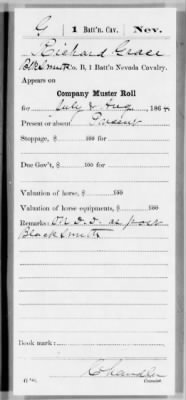 G | 1 Batt'n. Cav. | Nev.
Richard Grace
Blksmith Co. B, 1 Batt'n Nevada Cavalry.
Appears on
Company Muster Roll
for July & Aug, 1864
Present or absent Present
Stoppage, $ 100 for
Due Gov't, $ 100 for
Valuation of horse, $ 100
Valuation of horse equipments, $ 100
Remarks: as post
Blacksmith
Book mark:
Chandler
Copyist.